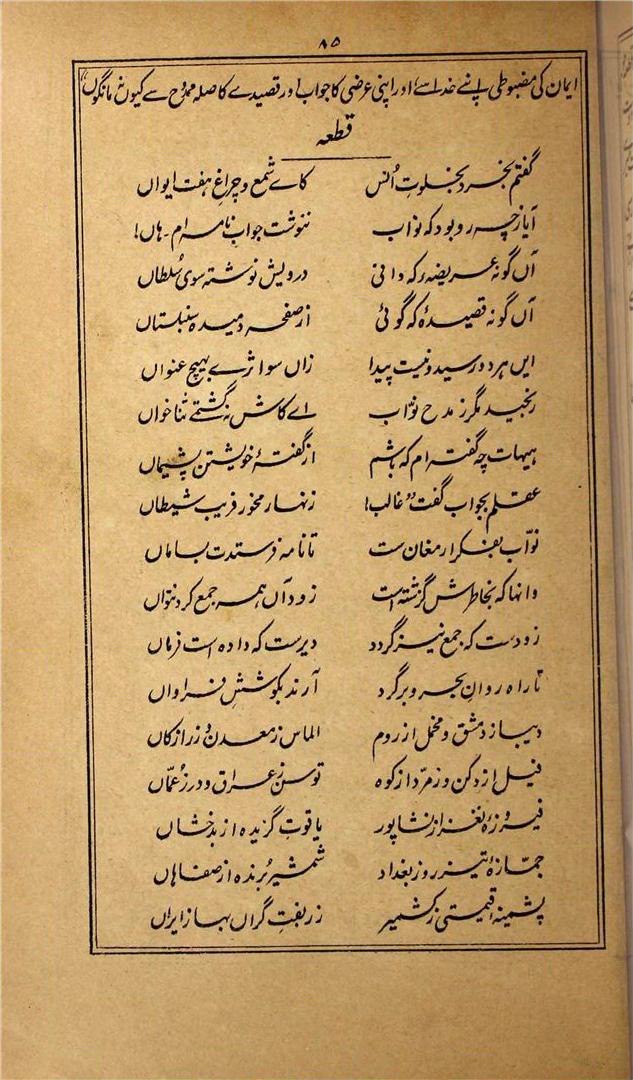 ۸۵
ایمان کی مضبوطی اپنے خدا سے اور اپنی عرضی کا جواب اور قصیدے کا صلہ ممدوح سے کیوں نہ مانگوں"
قطعہ
گفتم بخرد بخلوتِ اُنس کاے شمع و چراغِ ہفت ایواں
آیا زچہ رو بود کہ نواب ننوشت جواب نامہ ام ۔ ہاں!
آں گونہ عریضہء کہ دانی درویش نوشتہ سوی سُلطاں
آں گونہ قصیدۂ کہ گوئی از صفحہ دمیدہ سنبلستاں
ایں ہر دو رسید و نیست پیدا زاں سو اثرے بہیچ عنواں
رنجید مگر ز مدح نوّاب اے کاش نہ گشتے ثناخواں
ہیہات چہ گفتہ ام کہ باشم از گفتۂ خویشتن پشیماں
عقلم بجواب گفت "غالب! زنہار مخور فریب شیطاں
نوّاب بفکر ارمغان ست تا نامہ فرستدت بساماں
وانہا کہ بخاطرش گزشتہ است زود آں ہمہ جمع کرد نتواں
زودست کہ جمع نیز گردد دیرست کہ دادہ است فرماں
تا راہ روانِ بحر و بر گرد آرند بکوششِ فراواں
دیبا ز دمشق و مخمل از روم الماس ز معدن و زر از کاں
فیل از دکن و زمرّد از کوہ توسن ز عراق و در ز عُمّاں
فیروزۂ نغز از نشاپور یاقوتِ گزیدہ از بدخشاں
جمّازۂ تیز رو ز بغداد شمشیر بُرندہ از صفاہاں
پشمینۂ قیمتی ز کشمیر زربفتِ گراں بہا ز ایراں